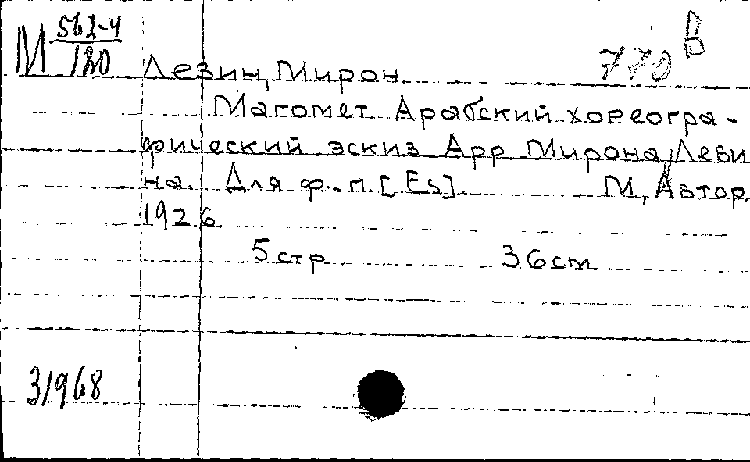 М 562-4/120
770 В
Левин, Мирон
Магомет Арабский хореогра-
фический эскиз Арр Мирона Леви
на. Для ф.-п. [Es]. М, Автор
1926
5 стр 36 cm
31968